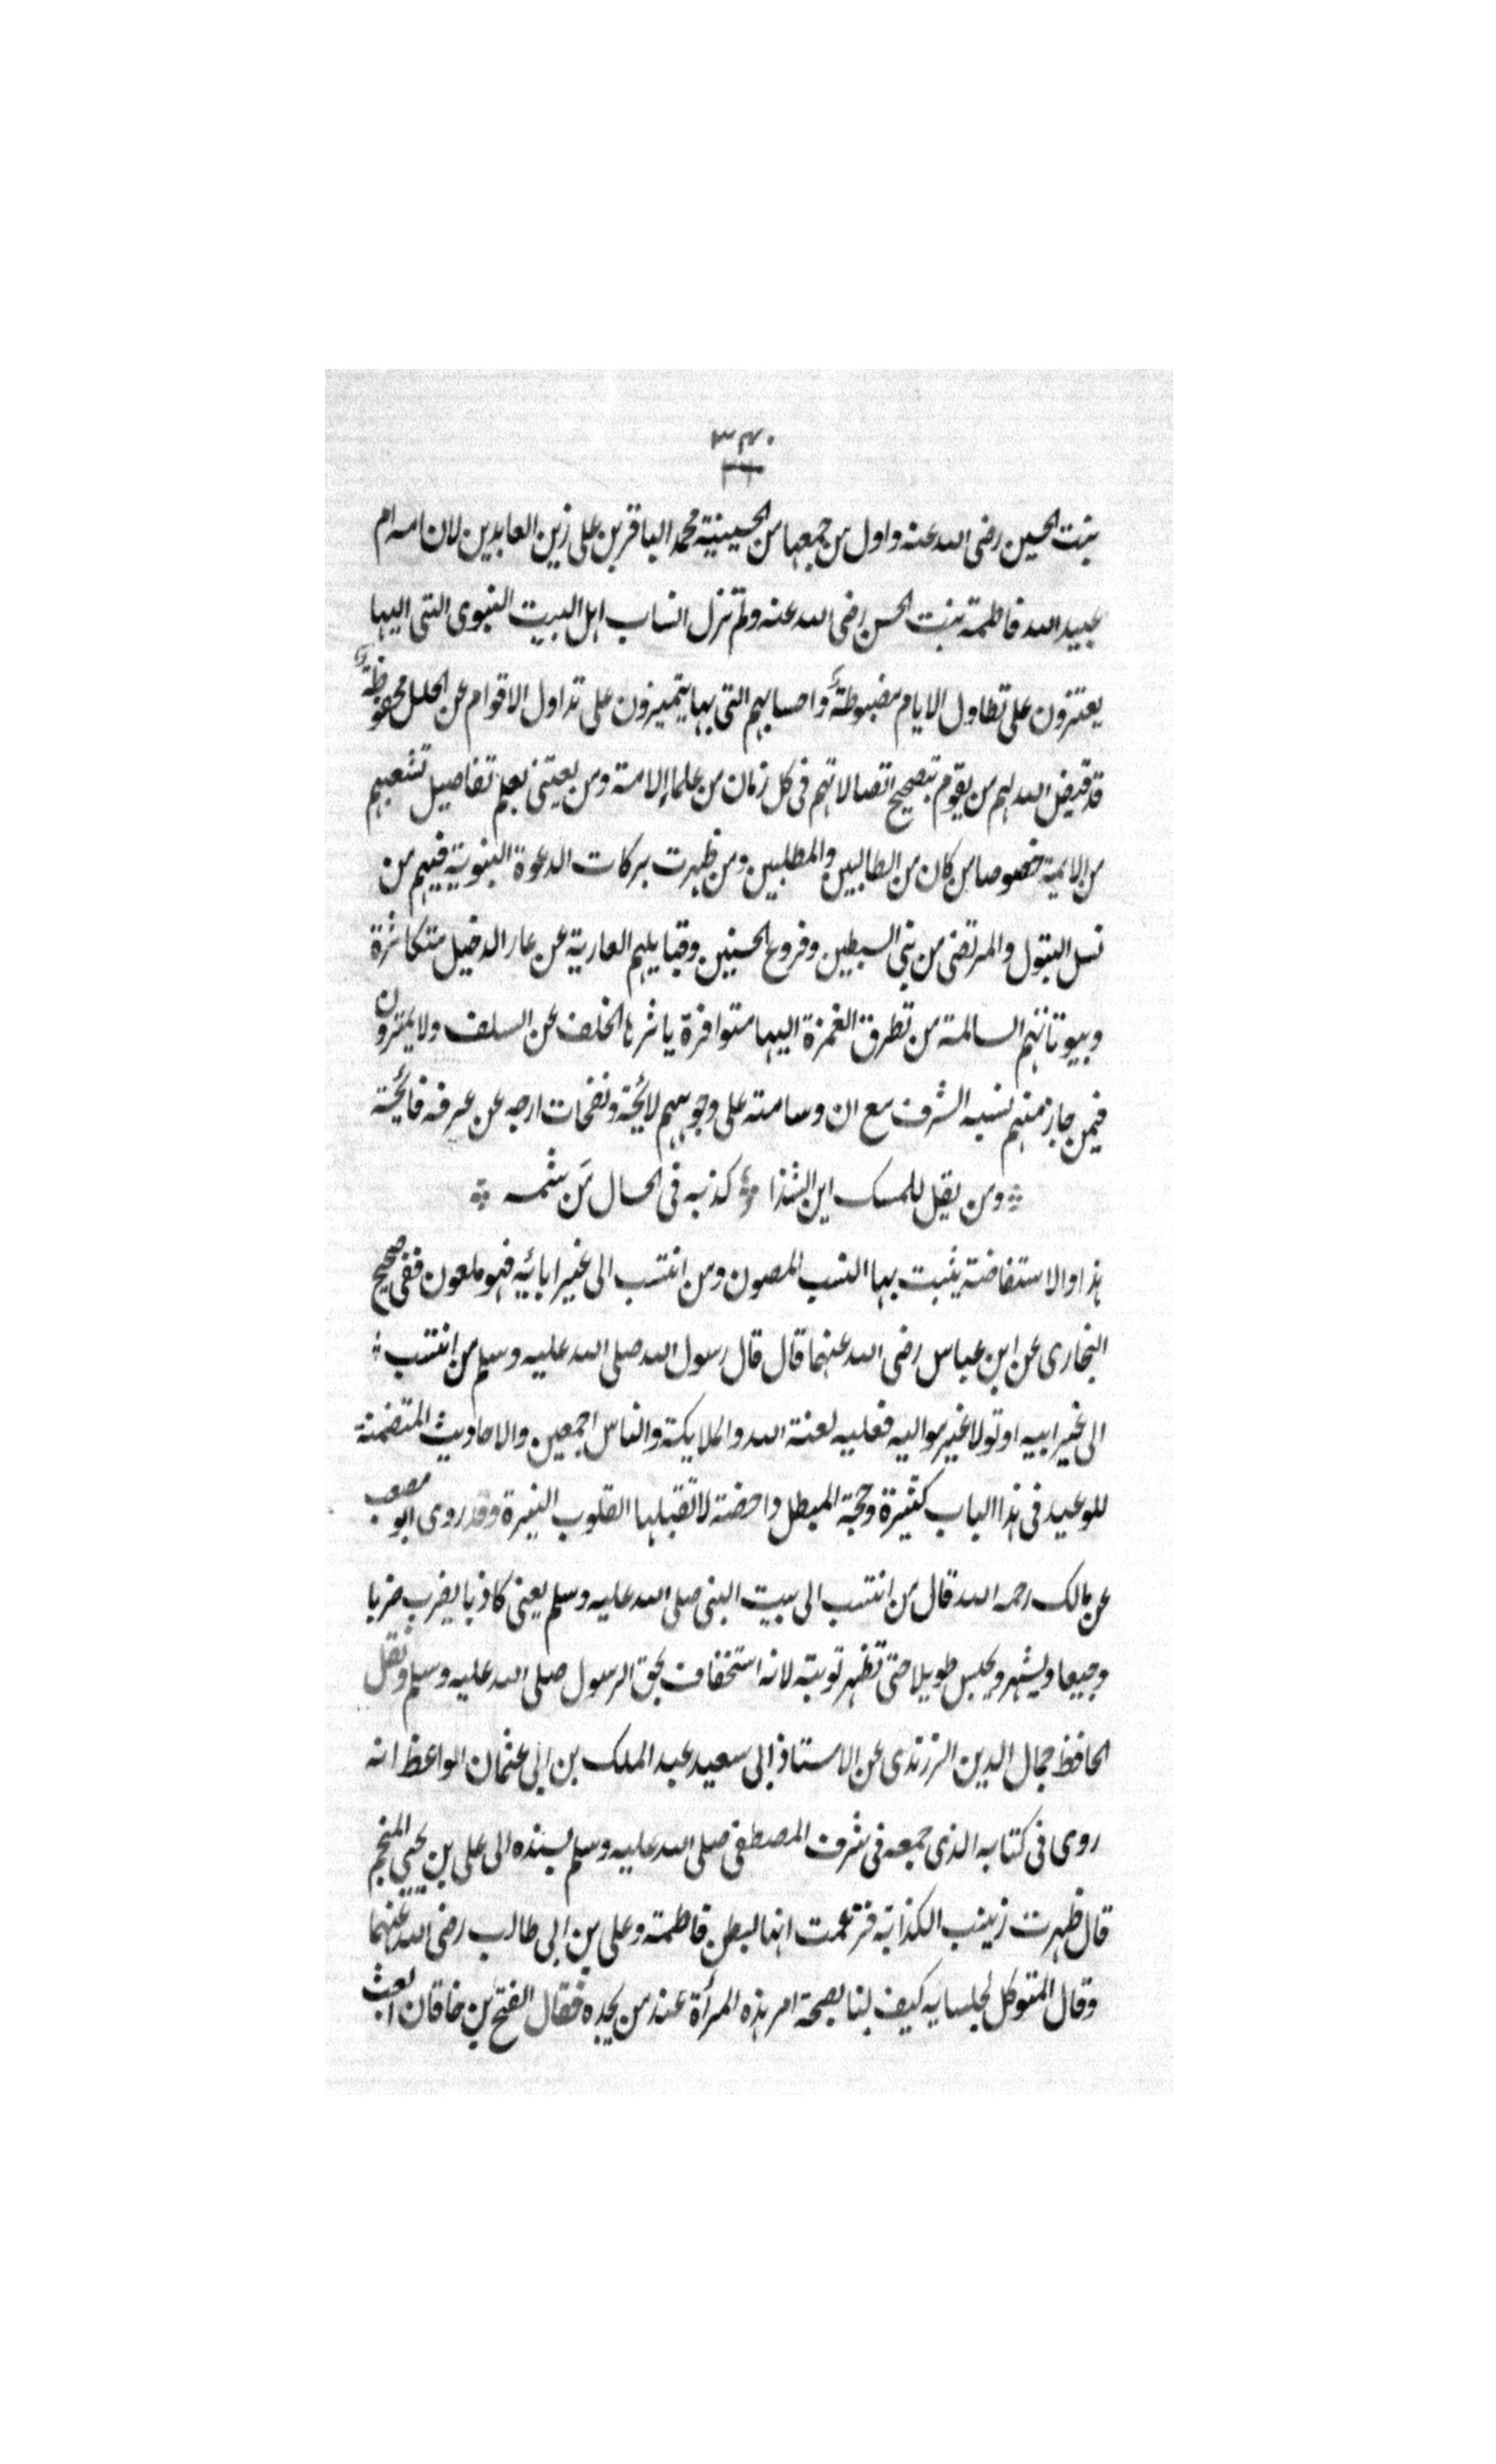 ٣٤٠
بنت الحسين رضى الله عنه واول من جمعها من الحسينية محمد الباقر بن على زين العابدين لان امه ام
عبيد الله فاطمة بنت الحسن رضى الله عنه ولم تزل انساب اهل البيت النبوى التى اليها
يعتزون على تطاول الايام مضبوطة واحسابهم التى بها يتميزون على تداول الاقوام عن الخلل محفوظة
قد قيض الله لهم من يقوم بتصحيح اتصالاتهم فى كل زمان من علماء الامة ومن يعتنى بعلم تفاصيل تشعبهم
من الايمة خصوصا من كان من الطالبين والمطلبين ومن ظهرت بركات الدعوة النبوية فيهم من
نسل البتول والمرتضى من بنى السبطين وفروع الحسنين وقبايلهم العارية عن عار الدخيل متكاثرة
وبيوتاتهم السالمة من تطرق الغمزة اليها متوافرة ياثرها الخلف عن السلف ولا يمترون
فيمن حاز منهم نسبه الشرف مع ان وسامته على وجوههم لائحة ونفحات ارجه عن عرفه فائحة
ومن يقل للمسك اين الشذا كذبه فى الحال مَن شمه
هذا والاستفاضة يثبت بها النسب المصون ومن انتسب الى غير ابائيه فهو ملعون ففى صحيح
البخارى عن ابن عباس رضى الله عنهما قال قال رسول الله صلى الله عليه وسلم من انتسب
الى غير ابيه او تولا غير مواليه فعليه لعنة الله والملايكة والناس اجمعين والاحاديث المتضمنة
للوعيد فى هذا الباب كثيرة وحجة المبطل داحضة لا تقبلها القلوب النيرة وقد روى ابو مصعب
عن مالك رحمه الله قال من انتسب الى بيت النبى صلى الله عليه وسلم يعنى كاذبا يضرب ضربا
وجيعا ويشهر ويحبس طويلا حتى تظهر توبته لانه استخفاف بحق الرسول صلى الله عليه وسلم ونقل
الحافظ جمال الدين الزرندى عن الاستاذ ابى سعيد عبد الملك بن ابى عثمان الواعظ انه
روى فى كتابه الذى جمعه فى شرف المصطفى صلى الله عليه وسلم بسنده الى على بن يحيى المنجم
قال ظهرت زينب الكذابة فزعمت انها لبطن فاطمة وعلى بن ابى طالب رضى الله عنهما
وقال المتوكل لجلسايه كيف لنا بصحة امر هذه المرأة عند من نجده فقال الفتح بن خاقان ابعث